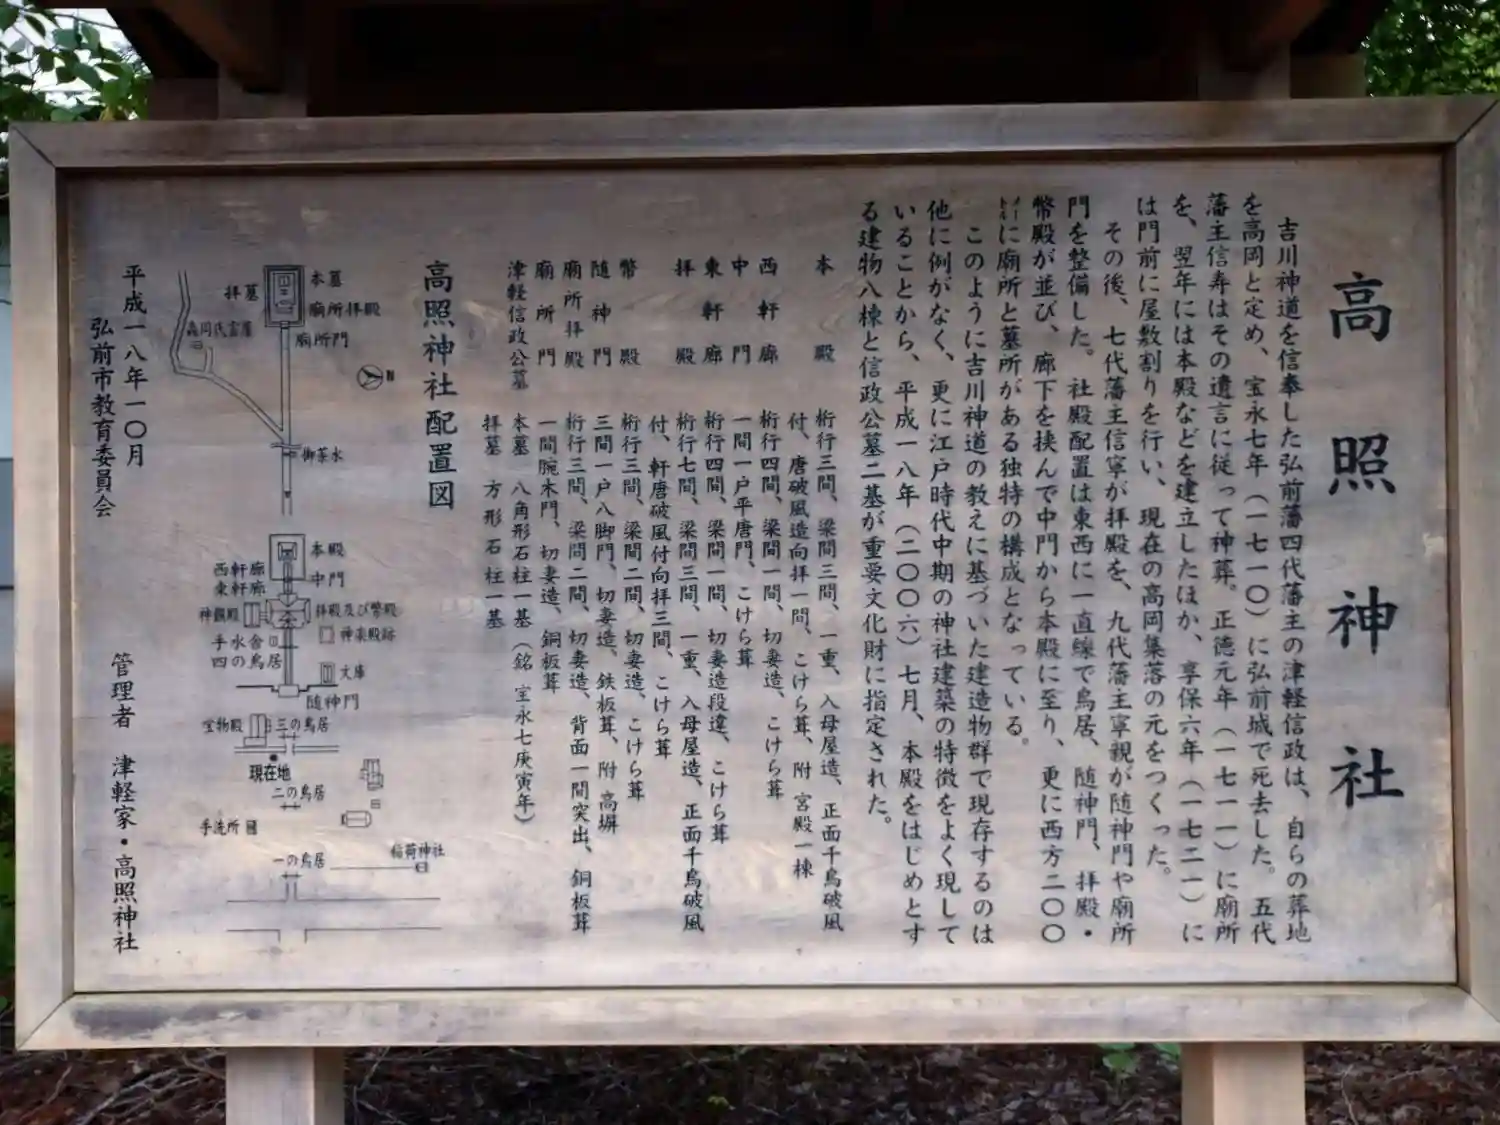 高照神社
吉川神道を信奉した弘前藩四代藩主の津軽信政は、自らの葬地
を高岡と定め、宝永七年(一七一〇)に弘前城で死去した。五代
藩主信寿はその遺言に従って神葬。正徳元年(一七一一)に廟所
を、翌年には本殿などを建立したほか、享保六年(一七二一)に
は門前に屋敷割りを行い、現在の高岡集落の元をつくった。
その後、七代藩主信寧が拝殿を、九代藩主寧親が随神門や廟所
門を整備した。社殿配置は東西に一直線で鳥居、随神門、拝殿・
幣殿が並び、廊下を挟んで中門から本殿に至り、更に西方二〇〇
メートルに廟所と墓所がある独特の構成となっている。
このように吉川神道の教えに基づいた建造物群で現存するのは
他に例がなく、更に江戸時代中期の神社建築の特徴をよく現して
いることから、平成一八年(二〇〇六)七月、本殿をはじめとす
る建物八棟と信政公墓二基が重要文化財に指定された。
本殿 桁行三間、梁間三間、一重、入母屋造、正面千鳥破風
付、唐破風造向拝一間、こけら葺、附 宮殿一棟
西軒廊 桁行四間、梁間一間、切妻造、こけら葺
中門 一間一戸平唐門、こけら葺
東軒廊 桁行四間、梁間一間、切妻造段違、こけら葺
拝殿 桁行七間、梁間三間、一重、入母屋造、正面千鳥破風
付、軒唐破風付向拝三間、こけら葺
幣殿 桁行三間、梁間二間、切妻造、こけら葺
随神門 三間一戸八脚門、切妻造、鉄板葺、附 高塀
廟所拝殿 桁行三間、梁間二間、切妻造、背面一間突出、銅板葺
廟所門 一間腕木門、切妻造、銅板葺
津軽信政公墓 本墓 八角形石柱一基(銘 宝永七庚寅年)
拝墓 方形石柱一基
高照神社配置図
本墓
拝墓
廟所拝殿
廟所門
高岡氏霊屋
N
御茶水
本殿
中門
西軒廊
東軒廊
神饌殿
拝殿及び幣殿
神楽殿跡
手水舎
四の鳥居
文庫
随神門
宝物殿
三の鳥居
現在地
二の鳥居
手洗所
一の鳥居
稲荷神社
平成一八年一〇月
弘前市教育委員会
管理者 津軽家・高照神社